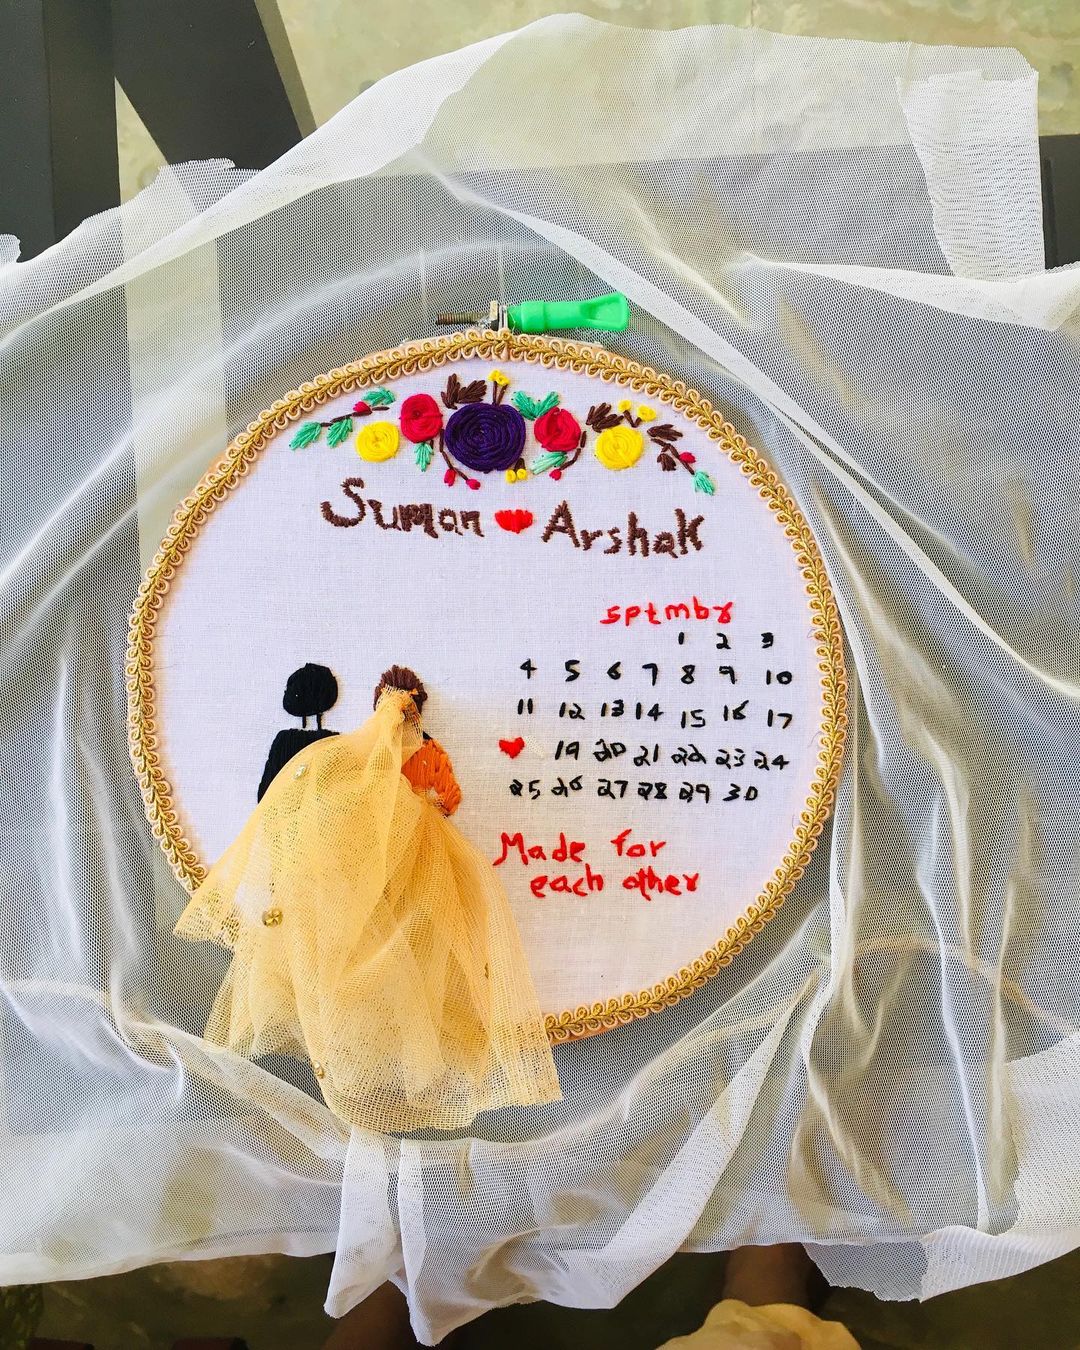 Suman Arshak
sptmbr
1 2 3
4 5 6 7 8 9 10
11 12 13 14 15 16 17
19 20 21 22 23 24
25 26 27 28 29 30
Made for
each other